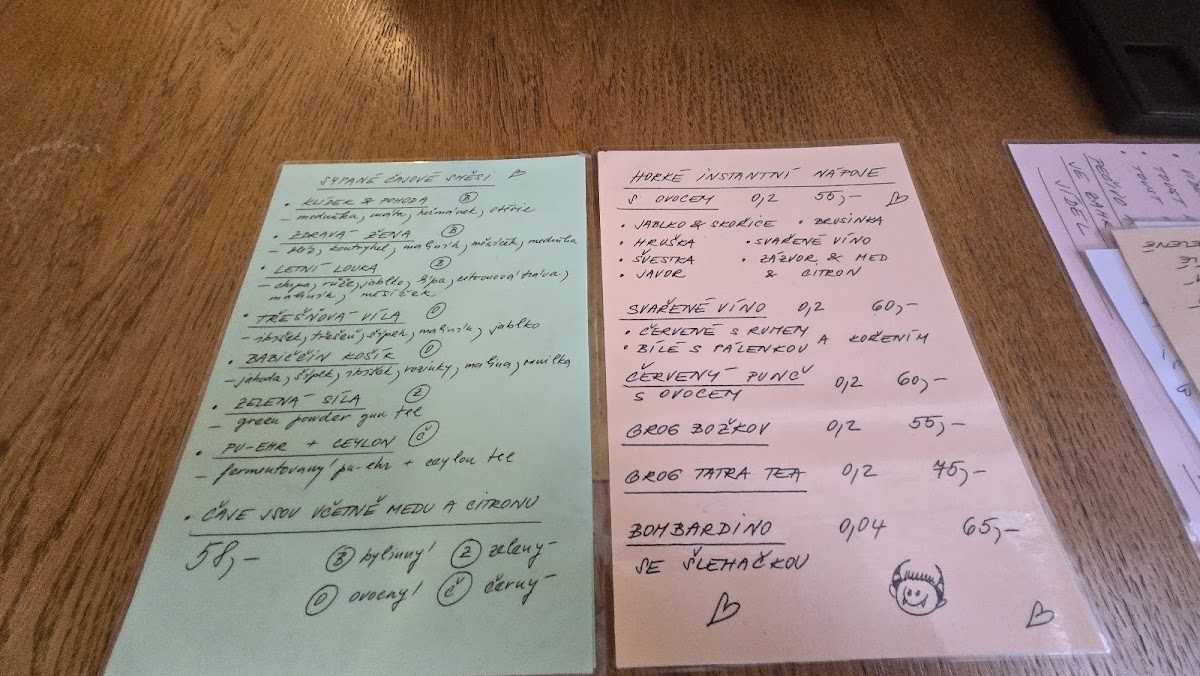 SYPANÉ ČAJOVÉ SMĚSI
• KLÍDEK & POHODA Ⓑ
– meduňka, máta, heřmánek,
• ZDRAVÁ ŽENA Ⓑ
kontryhel, maliník, měsíček, meduňka
• LETNÍ LOUKA Ⓑ
růže, jablko, lípa, citronová tráva,
maliník, měsíček
• TŘEŠŇOVÁ VÍLA Ⓞ
– ibišek, třešeň, šípek, maliník, jablko
• BABIČČIN KOŠÍK Ⓞ
– jahoda, šípek, ibišek, rozinky, malina, vanilka
• ZELENÁ SÍLA Ⓩ
– green powder gun tee
• PU-EHR + CEYLON Ⓒ̌
– fermentovaný pu-ehr + ceylon tee
• ČAJE JSOU VČETNĚ MEDU A CITRONU
58,– Ⓑ bylinný Ⓩ zelený
Ⓞ ovocný Ⓒ̌ černý
HORKÉ INSTANTNÍ NÁPOJE
S OVOCEM 0,2 55,–
• JABLKO & SKOŘICE • BRUSINKA
• HRUŠKA • SVAŘENÉ VÍNO
• ŠVESTKA • ZÁZVOR & MED
• JAVOR & CITRON
SVAŘENÉ VÍNO 0,2 60,–
• ČERVENÉ S RUMEM
• BÍLÉ S PÁLENKOU A KOŘENÍM
ČERVENÝ PUNČ 0,2 60,–
S OVOCEM
GROG BOŽKOV 0,2 55,–
GROG TATRA TEA 0,2 75,–
BOMBARDINO 0,04 65,–
SE ŠLEHAČKOU